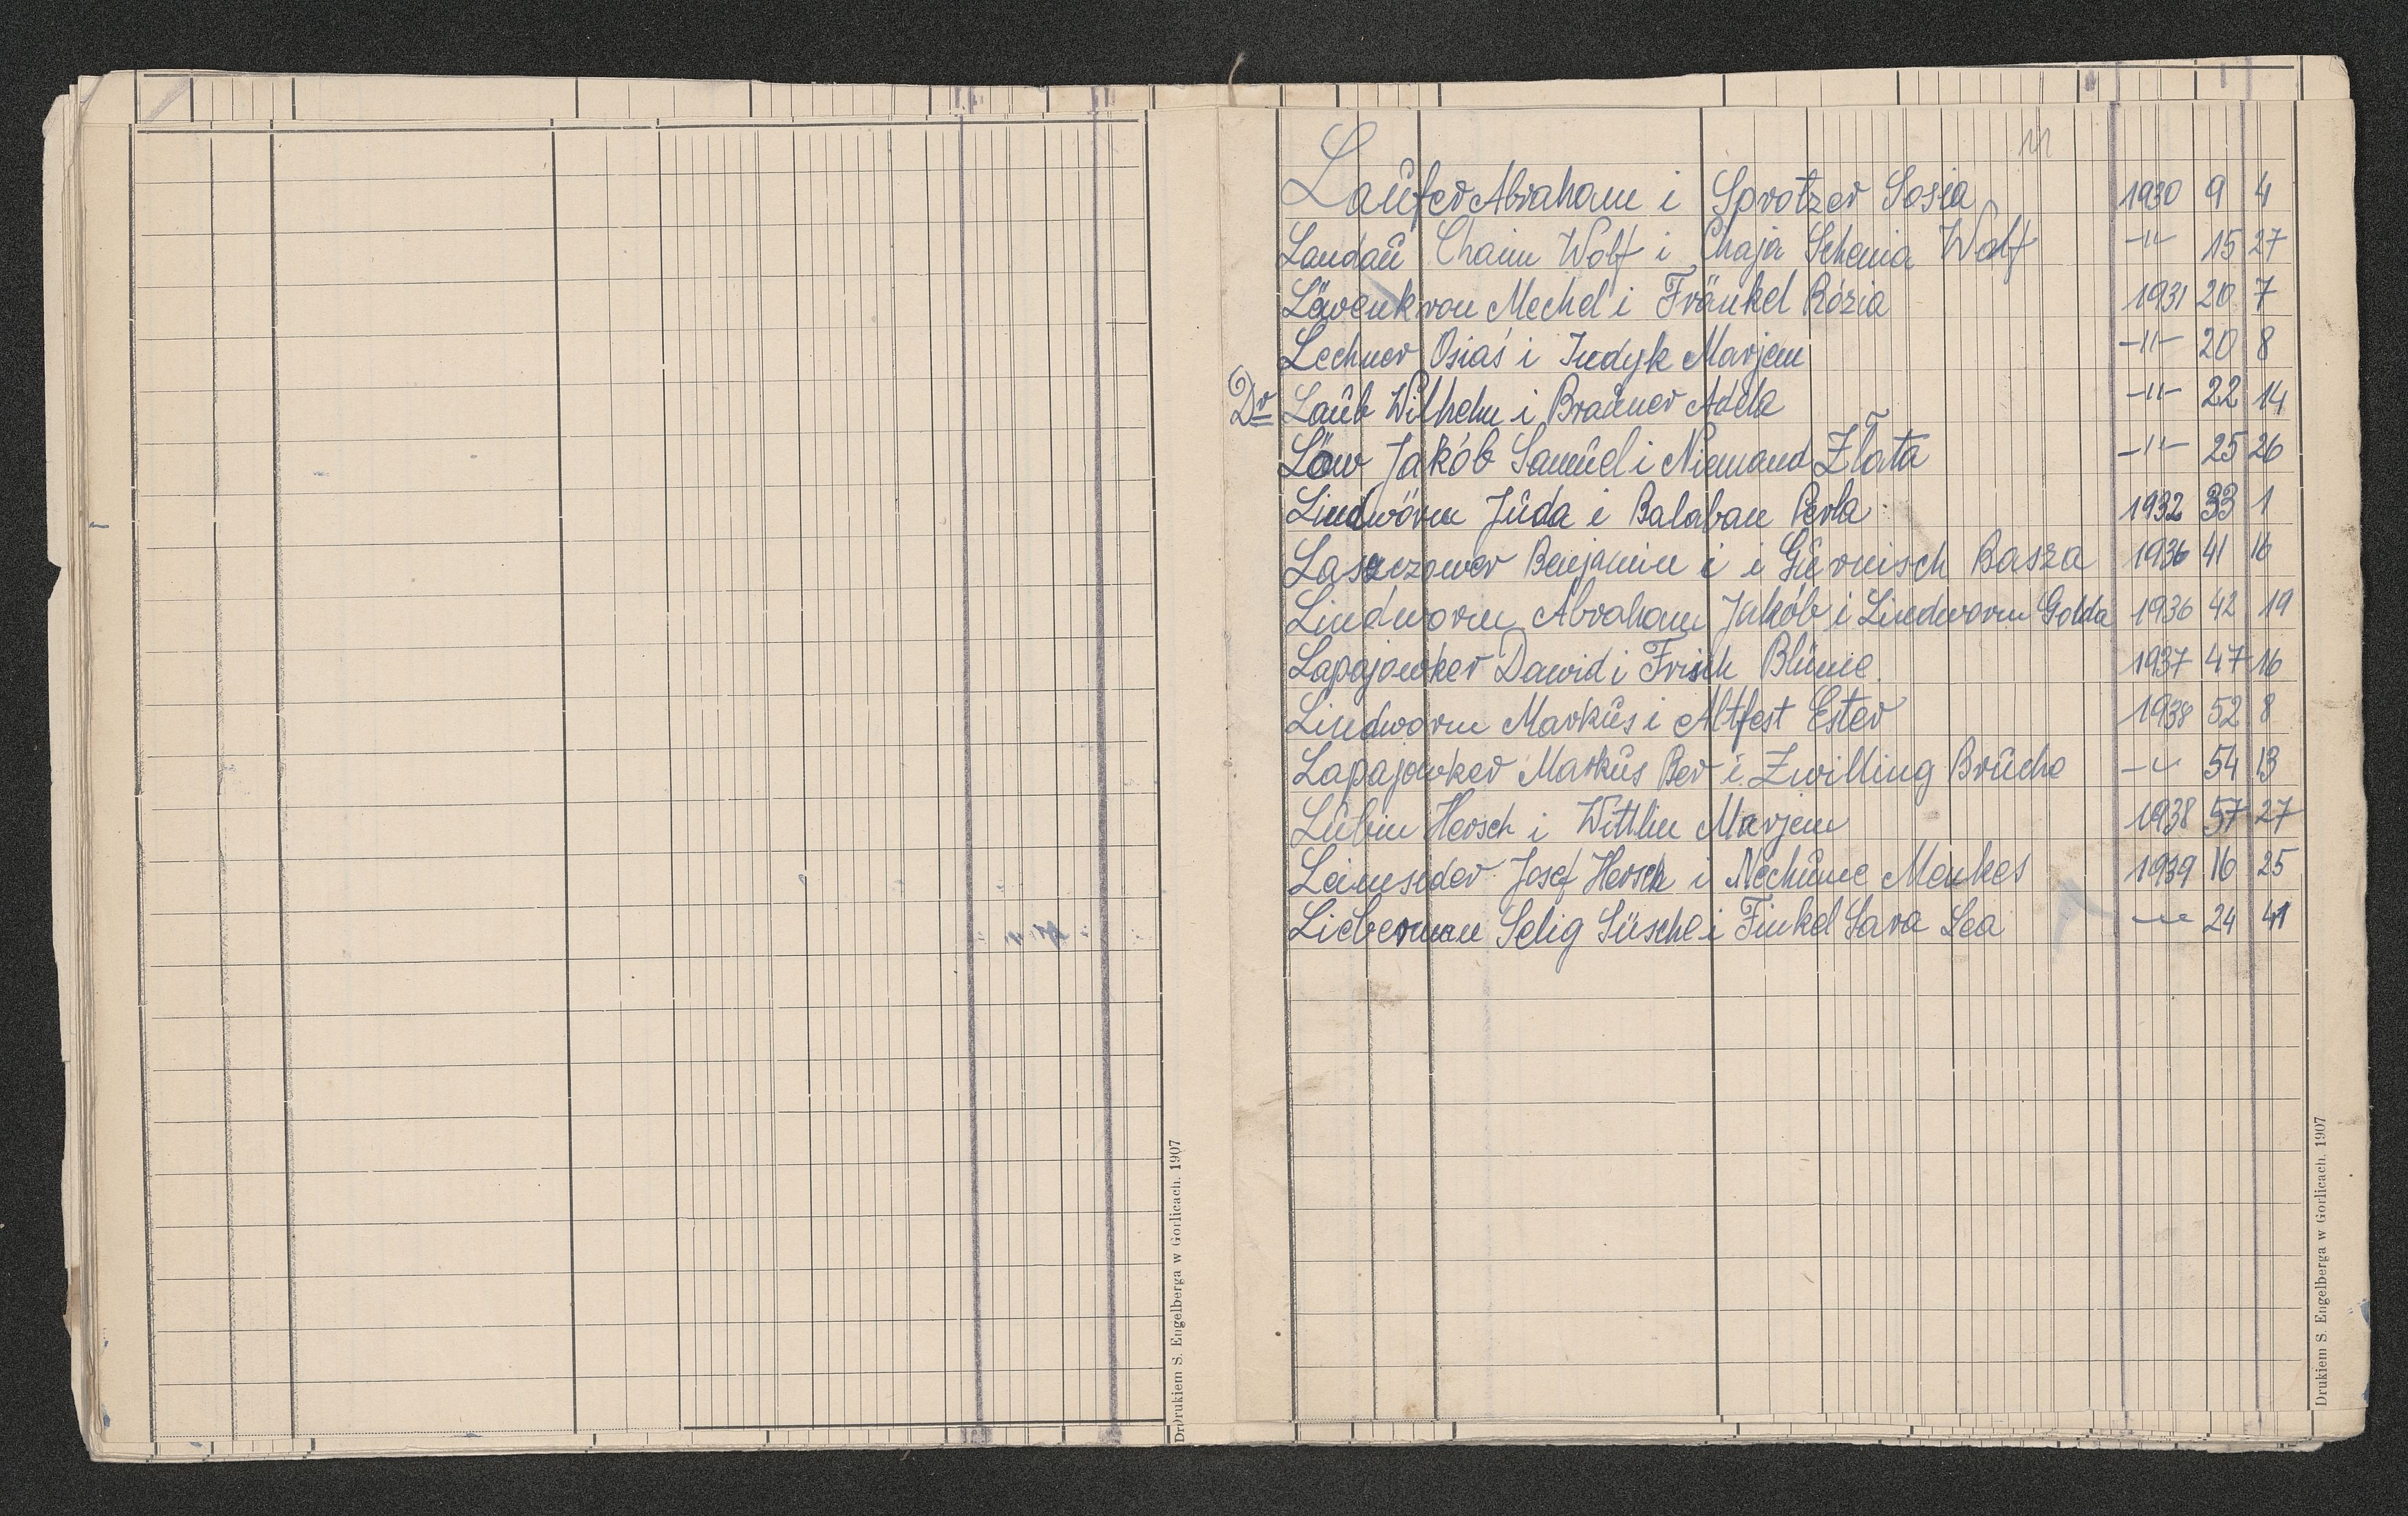 L
Laufer Abraham i Sprotzer Sosia 1930 9 4
Landau Chaim Wolf i Chaja Schenia Wolf -"- 15 27
Lävenkron Mechel i Fränkel Rózia 1931 20 7
Lechner Osiaś i Indyk Marjem -"- 20 8
Dr Laub Wilhelm i Brauner Adela -"- 22 14
Löw Jakób Samuel i Niemand Zlata -"- 25 26
Lindwörm Juda i Balaban Perla 1932 33 1
Laszczower Benjamin i i Gurnisch Basza 1936 41 16
Lindworm Abraham Jakób i Lindworm Golda 1936 42 19
Lapajowker Dawid i Frisch Blume 1937 47 16
Lindworm Markus i Altfest Ester 1938 52 8
Lapajowker Markus Ber i Zwilling Bruche -"- 54 13
Lubin Hersch i Wittlin Marjem 1938 57 27
Leimseder Josef Hersch i Nechume Menkes 1939 16 25
Lieberman Selig Süsche i Finkel Sara Lea -"- 24 41
Drukiem S. Engelberga w Gorlicach. 1907
Drukiem S. Engelberga w Gorlicach. 1907